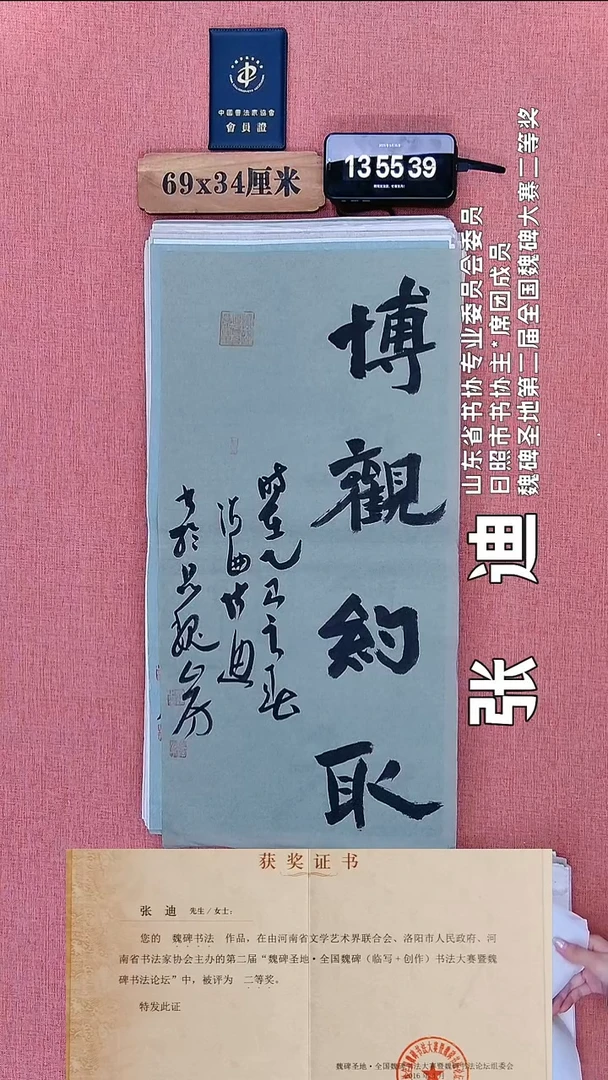 中國書法家協會
會員證
69x34厘米
13 55 39
博觀約取
時在乙巳之夏
海曲張迪
書於思魏山房
山东省书协专业委员会委员
日照市书协主*席团成员
魏碑圣地第二届全国魏碑大赛二等奖
张 迪
获奖证书
张 迪 先生/女士:
您的 魏碑书法 作品,在由河南省文学艺术界联合会、洛阳市人民政府、河
南省书法家协会主办的第二届“魏碑圣地·全国魏碑(临写+创作)书法大赛暨魏
碑书法论坛”中,被评为 二等奖。
特发此证
魏碑圣地·全国魏碑书法大赛暨魏碑书法论坛组委会